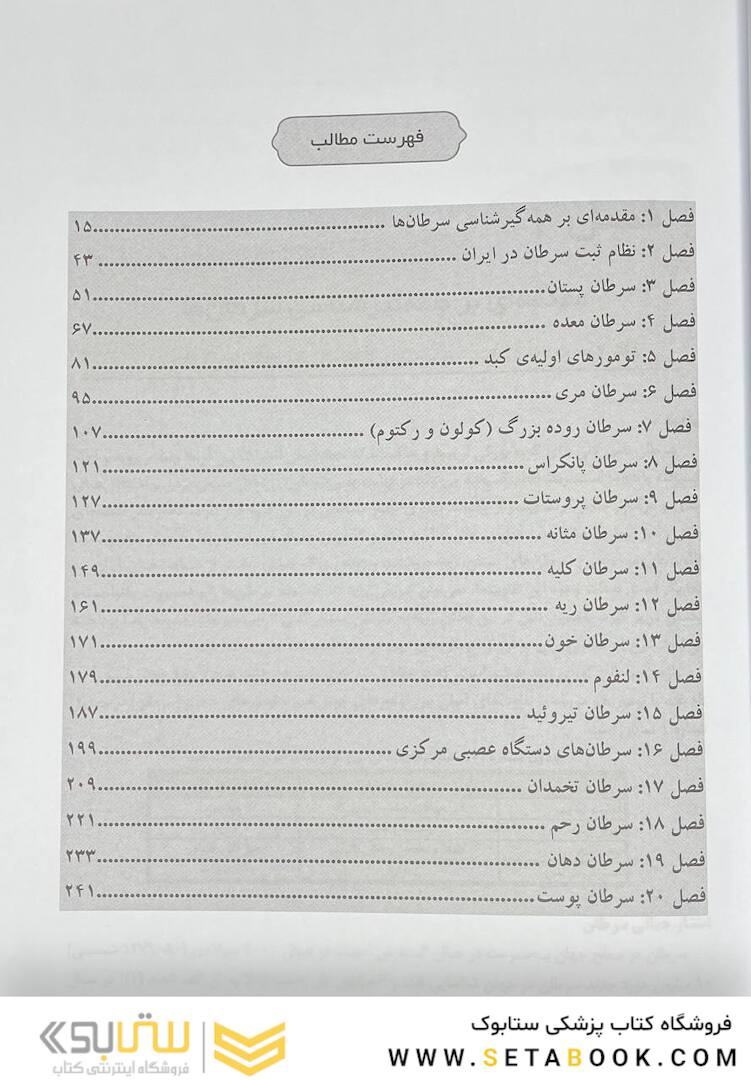 فهرست مطالب
فصل ۱: مقدمه‌ای بر همه‌گیرشناسی سرطان‌ها ........ ۱۵
فصل ۲: نظام ثبت سرطان در ایران ........ ۴۳
فصل ۳: سرطان پستان ........ ۵۱
فصل ۴: سرطان معده ........ ۶۷
فصل ۵: تومورهای اولیه‌ی کبد ........ ۸۱
فصل ۶: سرطان مری ........ ۹۵
فصل ۷: سرطان روده بزرگ (کولون و رکتوم) ........ ۱۰۷
فصل ۸: سرطان پانکراس ........ ۱۲۱
فصل ۹: سرطان پروستات ........ ۱۲۷
فصل ۱۰: سرطان مثانه ........ ۱۳۷
فصل ۱۱: سرطان کلیه ........ ۱۴۹
فصل ۱۲: سرطان ریه ........ ۱۶۱
فصل ۱۳: سرطان خون ........ ۱۷۱
فصل ۱۴: لنفوم ........ ۱۷۹
فصل ۱۵: سرطان تیروئید ........ ۱۸۷
فصل ۱۶: سرطان‌های دستگاه عصبی مرکزی ........ ۱۹۹
فصل ۱۷: سرطان تخمدان ........ ۲۰۹
فصل ۱۸: سرطان رحم ........ ۲۲۱
فصل ۱۹: سرطان دهان ........ ۲۳۳
فصل ۲۰: سرطان پوست ........ ۲۴۱
فروشگاه کتاب پزشکی ستابوک
WWW.SETABOOK.COM
ستابوک
فروشگاه اینترنتی کتاب